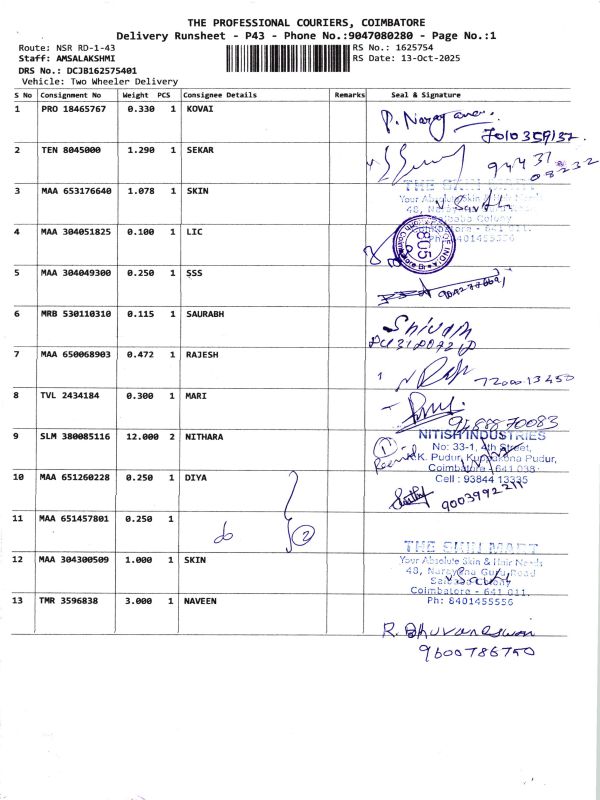 THE PROFESSIONAL COURIERS, COIMBATORE
Delivery Runsheet - P43 - Phone No.:9047080280 - Page No.:1
Route: NSR RD-1-43
RS No.: 1625754
Staff: AMSALAKSHMI
RS Date: 13-Oct-2025
DRS No.: DCJB162575401
Vehicle: Two Wheeler Delivery
S No Consignment No Weight PCS Consignee Details Remarks Seal & Signature
1 PRO 18465767 0.330 1 KOVAI
P. Narayanan
2 TEN 8045000 1.290 1 SEKAR
94431
08232
3 MAA 653176640 1.078 1 SKIN
THE SKIN MART
Your Absolute Skin & Hair Needs
Saibaba Colony
Coimbatore - 641 011.
4 MAA 304051825 0.100 1 LIC
805
5 MAA 304049300 0.250 1 SSS
6 MRB 530110310 0.115 1 SAURABH
Shivam
7 MAA 650068903 0.472 1 RAJESH
7200013450
8 TVL 2434184 0.300 1 MARI
9488870083
9 SLM 380085116 12.000 2 NITHARA
NITISH INDUSTRIES
No: 33-1, 4th Street,
K.K. Pudur, Kuppakona Pudur,
Coimbatore - 641 038
Cell : 93844 13335
1
10 MAA 651260228 0.250 1 DIYA
9003992211
11 MAA 651457801 0.250 1
2
12 MAA 304300509 1.000 1 SKIN
THE SKIN MART
Your Absolute Skin & Hair Needs
48, Narayana Guru Road
Saibaba Colony
Coimbatore - 641 011.
Ph: 8401455556
13 TMR 3596838 3.000 1 NAVEEN
R. Bhuvaneswari
9600786750